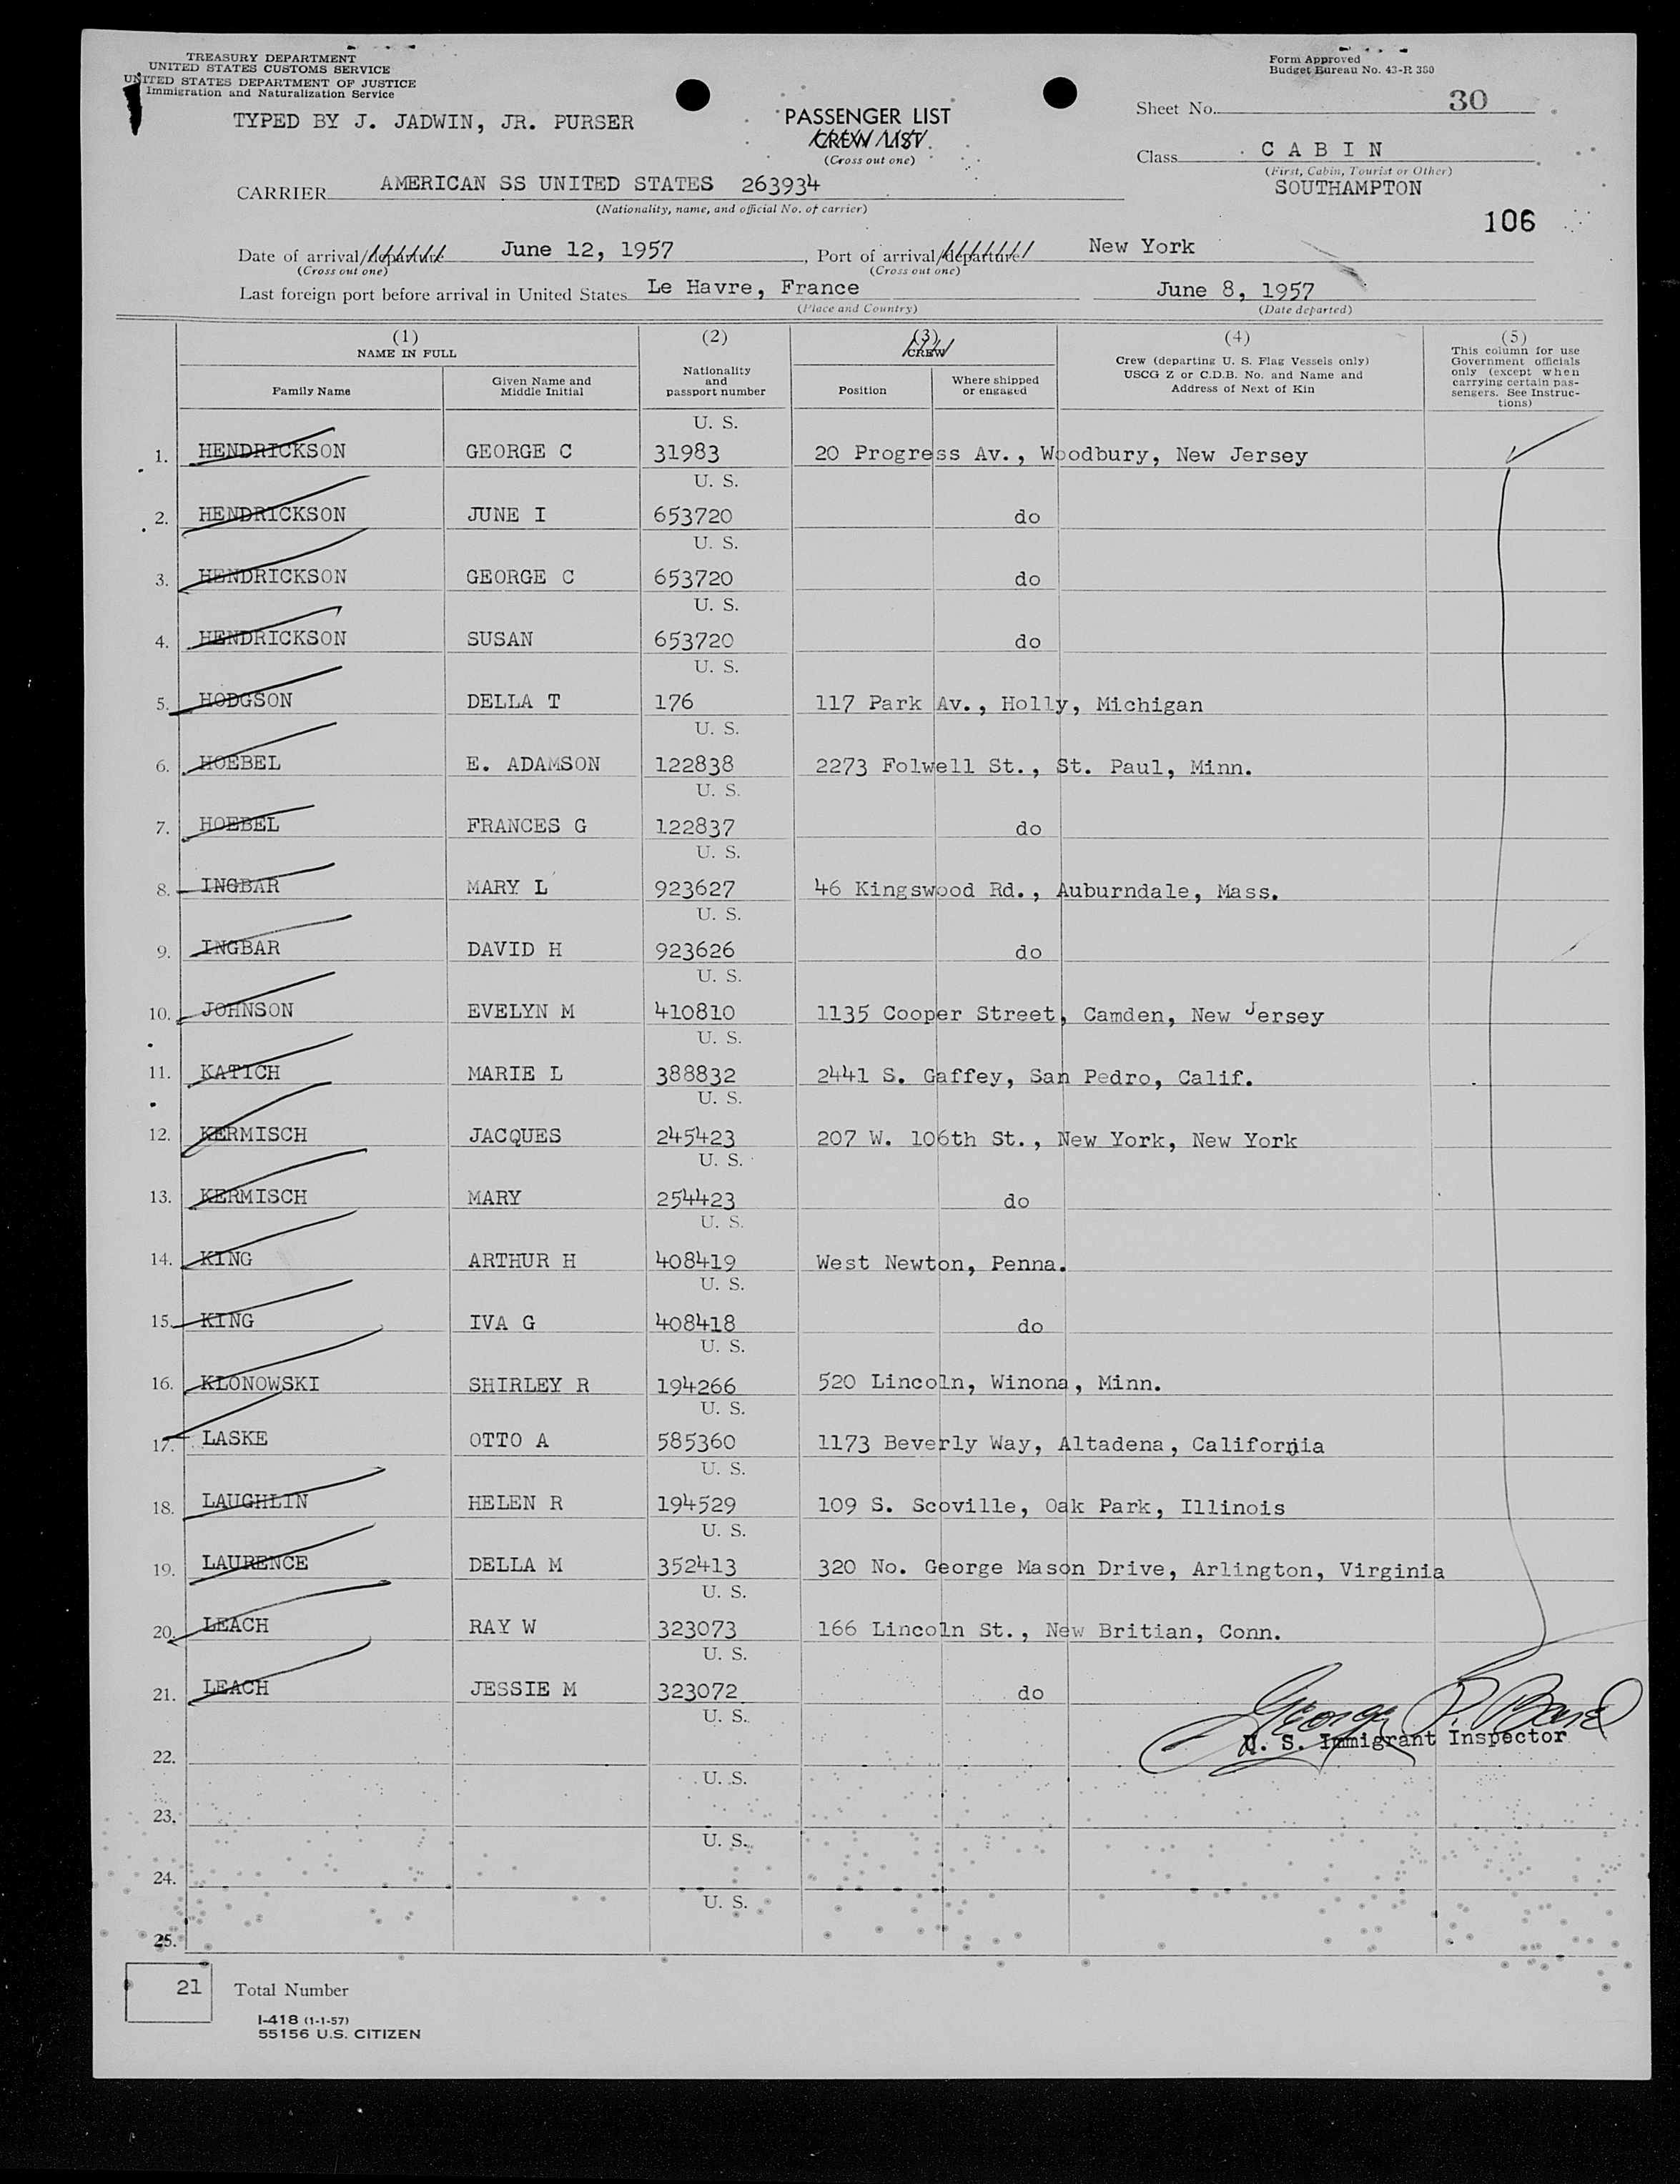 TREASURY DEPARTMENT
UNITED STATES CUSTOMS SERVICE
UNITED STATES DEPARTMENT OF JUSTICE
Immigration and Naturalization Service
TYPED BY J. JADWIN, JR. PURSER
PASSENGER LIST
CREW LIST
(Cross out one)
Form Approved
Budget Bureau No. 43-R 380
Sheet No. 30
Class CABIN
(First, Cabin, Tourist or Other)
SOUTHAMPTON
CARRIER AMERICAN SS UNITED STATES 263934
(Nationality, name, and official No. of carrier)
106
Date of arrival/departure June 12, 1957, Port of arrival/departure New York
(Cross out one) (Cross out one)
Last foreign port before arrival in United States Le Havre, France June 8, 1957
(Place and Country) (Date departed)
(1) NAME IN FULL
Family Name
Given Name and Middle Initial
(2)
Nationality and passport number
(3)
CREW
Position
Where shipped or engaged
(4)
Crew (departing U. S. Flag Vessels only)
USCG Z or C.D.B. No. and Name and
Address of Next of Kin
(5)
This column for use
Government officials
only (except when
carrying certain pas-
sengers. See Instruc-
tions)
U. S.
1. HENDRICKSON GEORGE C 31983 20 Progress Av., Woodbury, New Jersey
U. S.
2. HENDRICKSON JUNE I 653720 do
U. S.
3. HENDRICKSON GEORGE C 653720 do
U. S.
4. HENDRICKSON SUSAN 653720 do
U. S.
5. HODGSON DELLA T 176 117 Park Av., Holly, Michigan
U. S.
6. HOEBEL E. ADAMSON 122838 2273 Folwell St., St. Paul, Minn.
U. S.
7. HOEBEL FRANCES G 122837 do
U. S.
8. INGBAR MARY L 923627 46 Kingswood Rd., Auburndale, Mass.
U. S.
9. INGBAR DAVID H 923626 do
U. S.
10. JOHNSON EVELYN M 410810 1135 Cooper Street, Camden, New Jersey
U. S.
11. KATICH MARIE L 388832 2441 S. Gaffey, San Pedro, Calif.
U. S.
12. KERMISCH JACQUES 245423 207 W. 106th St., New York, New York
U. S.
13. KERMISCH MARY 254423 do
U. S.
14. KING ARTHUR H 408419 West Newton, Penna.
U. S.
15. KING IVA G 408418 do
U. S.
16. KLONOWSKI SHIRLEY R 194266 520 Lincoln, Winona, Minn.
U. S.
17. LASKE OTTO A 585360 1173 Beverly Way, Altadena, California
U. S.
18. LAUGHLIN HELEN R 194529 109 S. Scoville, Oak Park, Illinois
U. S.
19. LAURENCE DELLA M 352413 320 No. George Mason Drive, Arlington, Virginia
U. S.
20. LEACH RAY W 323073 166 Lincoln St., New Britian, Conn.
U. S.
21. LEACH JESSIE M 323072 do
U. S.
George
U. S. Immigrant Inspector
22.
U. S.
23.
U. S.
24.
U. S.
25.
21 Total Number
I-418 (1-1-57)
55156 U.S. CITIZEN